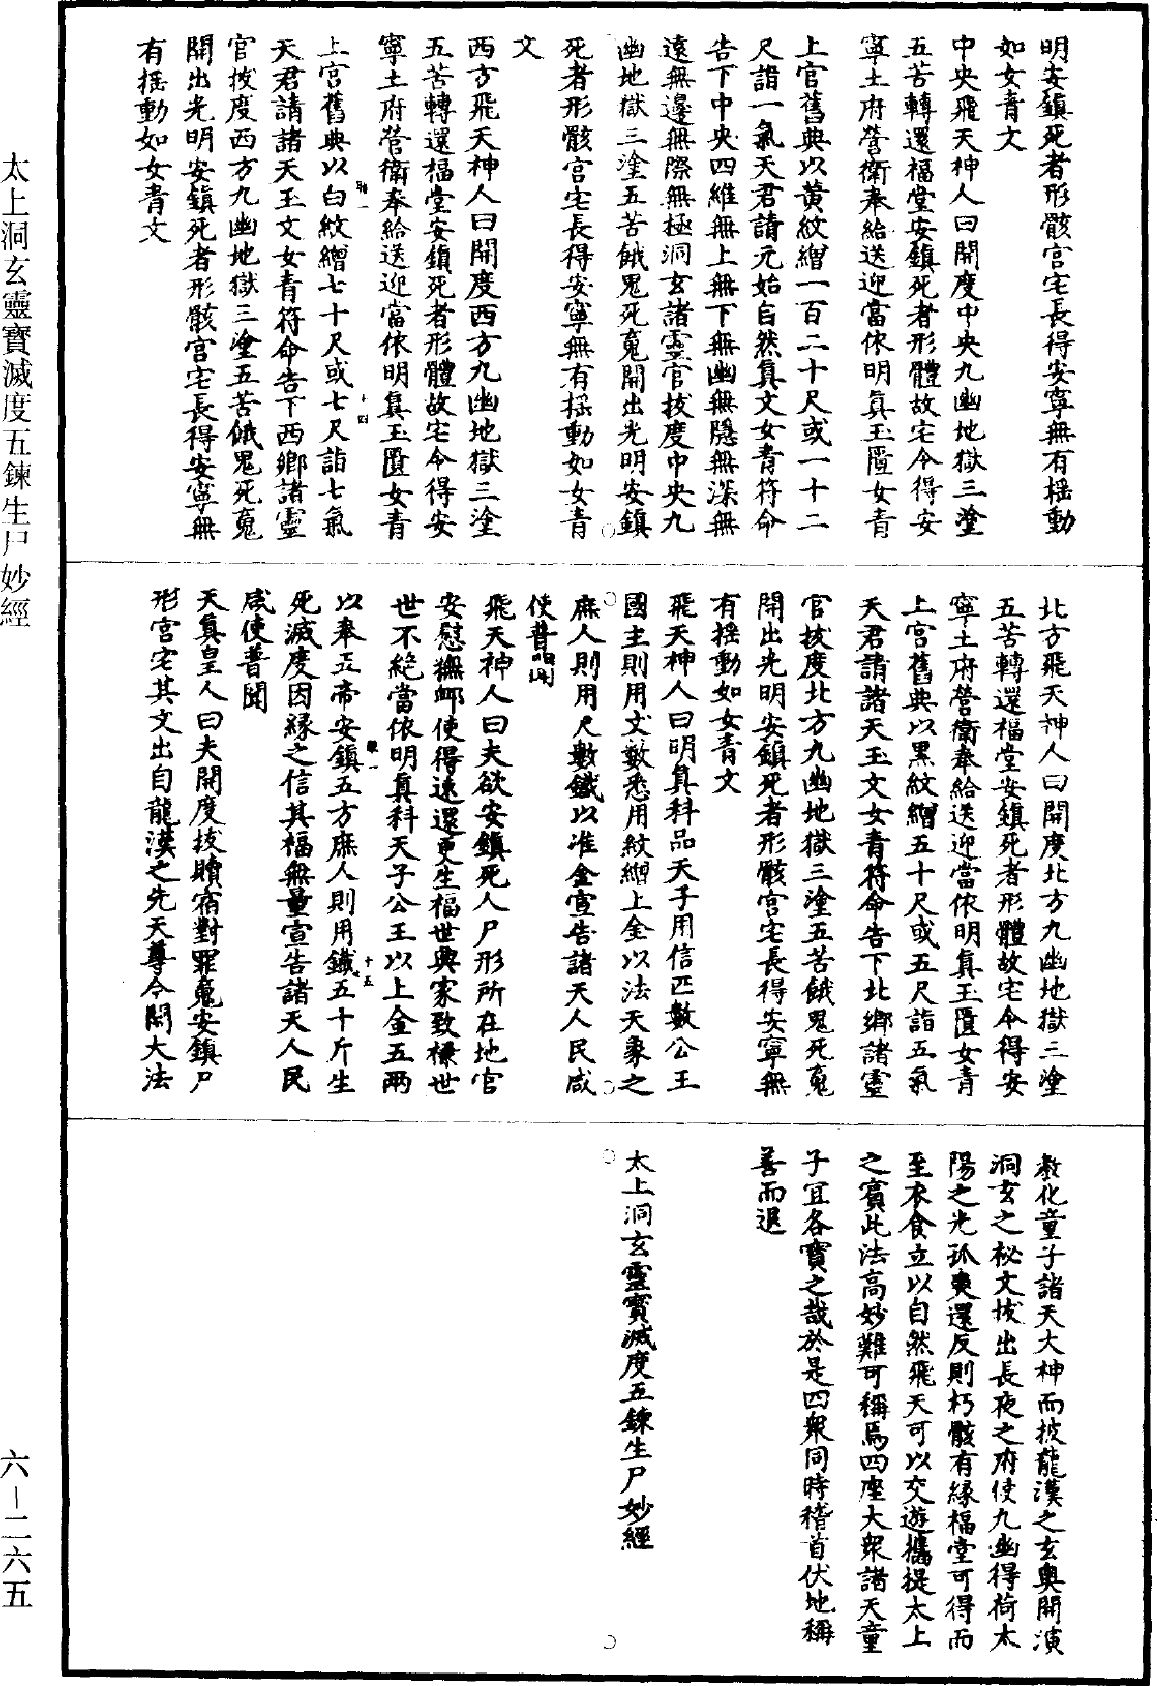 明安鎮死者形骸宮宅長得安寧無有揺動
如女青文
中央飛天神人曰開度中央九幽地獄三塗
五苦轉還福堂安鎮死者形體故宅令得安
寧土府營衛奉給送迎當依明真玉匱女青
上官舊典以黃紋繒一百二十尺或一十二
尺詣一氣天君請元始自然真文女青符命
告下中央四維無上無下無幽無隱無深無
遠無邊無際無極洞玄諸靈官拔度中央九
幽地獄三塗五苦餓鬼死魂開出光明安鎮
死者形骸宮宅長得安寧無有揺動如女青
文
西方飛天神人曰開度西方九幽地獄三塗
五苦轉還福堂安鎮死者形體故宅令得安
寧土府營衛奉給送迎當依明真玉匱女青
上宮舊典以白紋繒七十尺或七尺詣七氣
天君請諸天玉文女青符命告下西鄉諸靈
官拔度西方九幽地獄三塗五苦餓鬼死魂
開出光明安鎮死者形骸宮宅長得安寧無
有揺動如女青文
十四
北方飛天神人曰開度北方九幽地獄三塗
五苦轉還福堂安鎮死者形體故宅令得安
寧土府營衛奉給送迎當依明真玉匱女青
上宮舊典以黑紋繒五十尺或五尺詣五氣
天君請諸天玉文女青符命告下北鄉諸靈
官拔度北方九幽地獄三塗五苦餓鬼死魂
開出光明安鎮死者形骸宮宅長得安寧無
有揺動如女青文
飛天神人曰明真科品天子用信匹數公王
國主則用丈數悉用紋繒上金以法天象之
庶人則用尺數鐵以准金宣告諸天人民咸
使普聞
飛天神人曰夫欲安鎮死人尸形所在地官
安慰撫卹使得速還更生福世興家致祿世
世不絕當依明真科天子公王以上金五兩
以奉五帝安鎮五方庶人則用鐵五十斤生
死滅度因緣之信其福無量宣告諸天人民
咸使普聞
天真皇人曰夫開度拔贖宿對罪魂安鎮尸
形宮宅其文出自龍漢之先天尊今開大法
十五
教化童子諸天大神而披龍漢之玄奧開演
洞玄之祕文拔出長夜之府使九幽得荷太
陽之光孤爽還反則朽骸有緣福堂可得而
至衣食立以自然飛天可以交遊攜提太上
之賓此法高妙難可稱焉四座大眾諸天童
子宜各寶之哉於是四眾同時稽首伏地稱
善而退
太上洞玄靈寶滅度五鍊生尸妙經
太上洞玄靈寶滅度五鍊生尸妙經
六—二六五